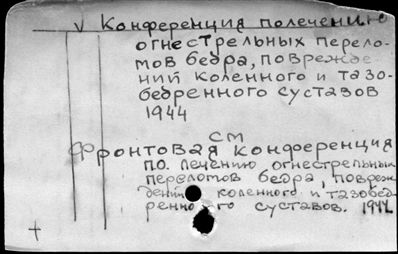 V Конференция по лечению
огнестрельных перело-
мов бедра, повреждe-
ний коленного и тазо-
бедренного суставов
1944
см
Фронтовая конференция
по лечению огнестрельных
переломов бедра, повреж-
дений коленного и тазобед-
ренного суставов. 1944